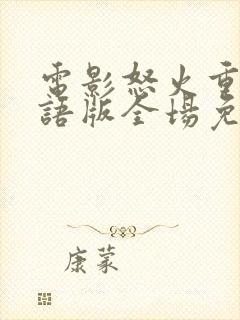 電影怒火重
語版全場免
康蒙